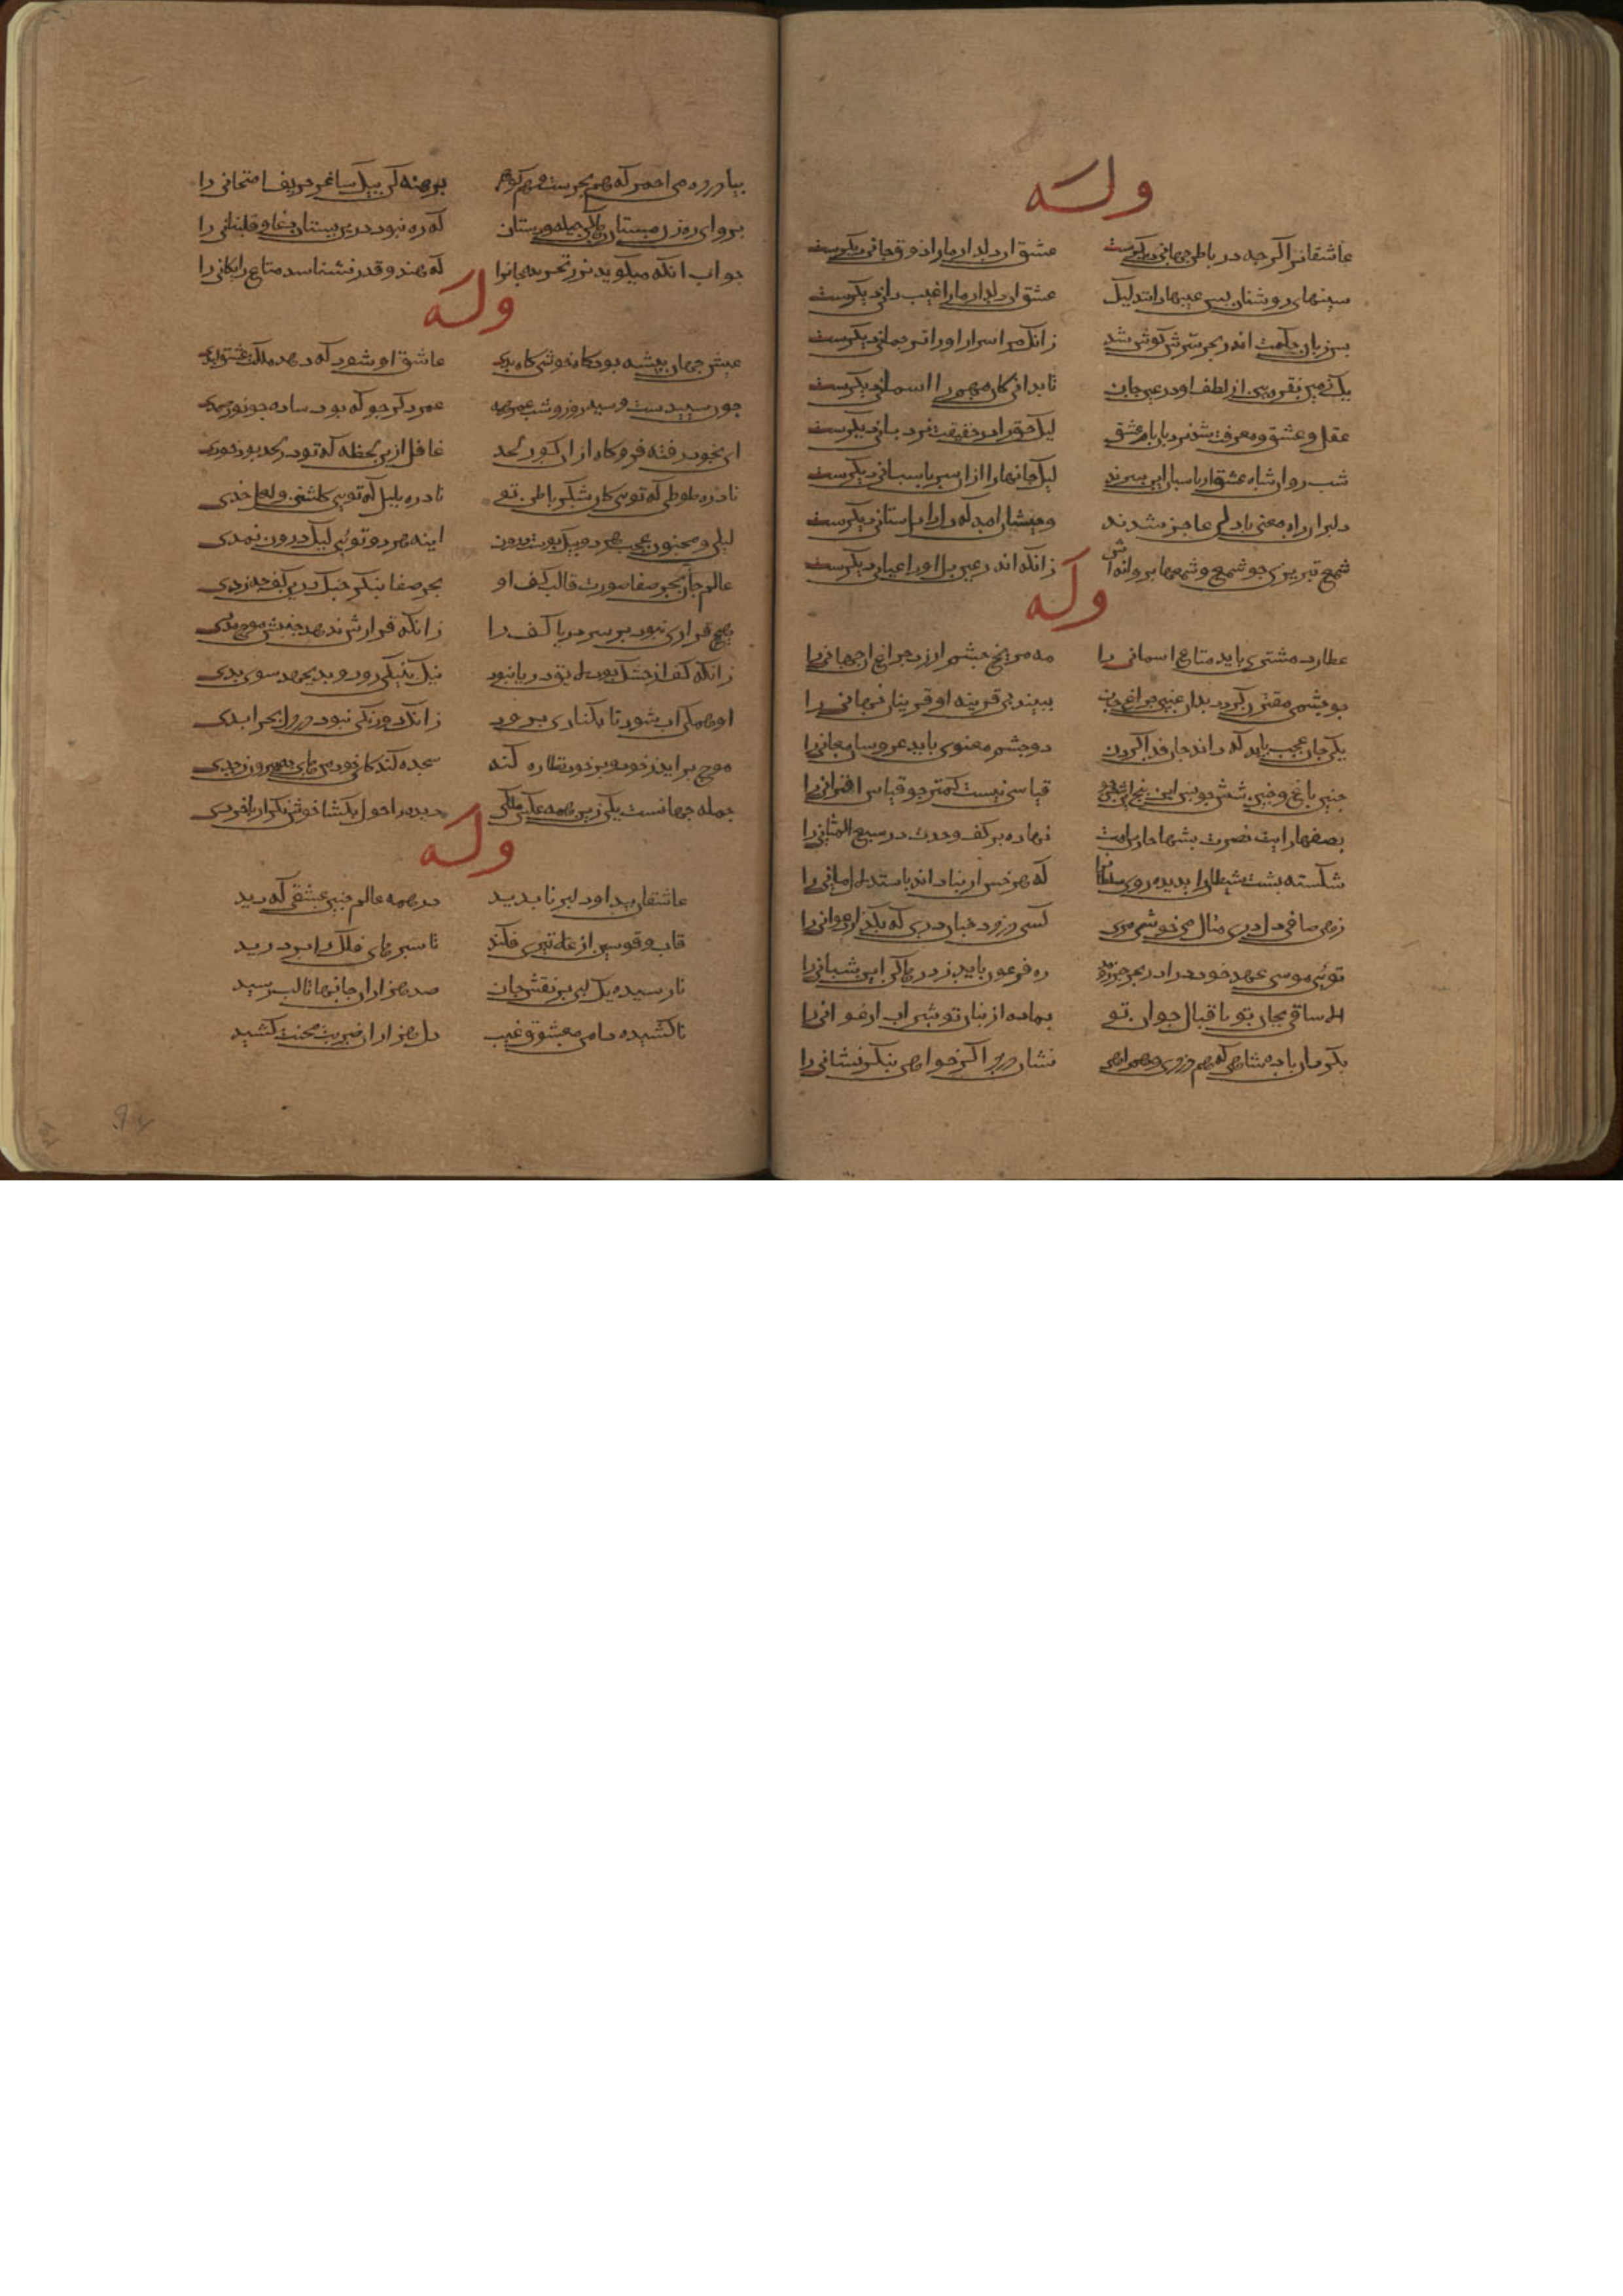 وله
عاشقانرا اکرچه در باطن جهانی دیکرست عشق ان دلدار مارا ذوق و جانی دیکرست
سینهای روشنان بس عیبها دانند لیک عشق ان دلدار مارا غیب دانی دیکرست
بس زبان حکمت اندر بحر سرش کوش شد زانک مر اسرار اورا ترجمانی دیکرست
یک زمین نقره بین از لطف او در عین جان تا بدانی کان مهم را اسمانی دیکرست
عقل و عشق و معرفت شد نردبان بام عشق لیک حق را در حقیقت نردبانی دیکرست
شب روان شاه عشق ار پاسبان این سرند لیک جانها را از ان سر پاسبانی دیکرست
دلبران راه معنی با دلی عاجز شدند وحیشان امد که دل را دلستانی دیکرست
شمع تبریزی چو شمع و شمعها پروانه اش زانکه اندر عین دل اورا عیانی دیکرست
وله
عطارد مشتری باید متاع اسمانی را مه مریخ چشم ارزد چراغ ان جهانی را
چو چشمی مقترن کردد بدان غیبی چراغ جان ببیند بی قرینه او قرینان نهانی را
یکی جان عجب باید که داند جان فدا کردن دو چشم معنوی باید عروسان معانی را
چنین باغ و چنین شش جو پس این پنج قیاسی نیست کمتر جو قیاس اقترانی را
بصفها رایت نصرت بشبها حارس امت نهاده بر کف وحدت در سبع المثانی را
شکسته پشت شیطانرا بدیده روی سلطانرا که هر خس از بنا داند باستدلال بانی را
زهی صافی زهی حری مثال می خوشی مری کسی دزدد چنین دری که بکذارد عوانی را
توئی موسی عهد خود درا در بحر جزر و مد ره فرعون باید زد رها کن این شبانی را
الا ساقی بجان تو باقبال جوان تو بماده از بنان تو شراب ارغوانی را
بکردان باده شاهی که هم دردی و همراهی نشان درد اکر خواهی بنکر نشانی را
بیا درده می احمر که هم بحرست و هم کوهر برهنه کن بیک ساغر حریف امتحانی را
برو ای رهزن مستان رها کن حیله و دستان که ره نبود درین بستان دغا و قلتبانی را
جواب انکه میکوید بزر نخریده جانرا که هندو قدر نشناسد متاع رایکانی را
وله
عیش جهان پیسه بود کاه خوشی کاه بدی عاشق او شود که دهد ملکت عیش ابدی
چون سپیدست و سیه روز و شب عمر همه عمر دکر جو که بود ساده چو نور صمدی
ای بخودت رفته فرو کاه از ان کور لحد غافل ازین لحظه که تو در لحد بود خودی
نادره طوطی که توی کان شکر باطن تو نادره بلبل که توی کلشنی و لعل خدی
لیلی و مجنون عجب هر دو بیک پوست درون اینه هر دو توئی لیک درون نمدی
عالم جان بحر صفا صورت قالب کف او بحر صفا بنکر چنک درین کف چه زدی
هیچ قراری نبود بر سر دریا کف را زانکه قرارش ندهد جنبش موج مددی
زانکه کف از خشک بود لایق دریا نبود نیک بنیکی رود و بد برود سوی بدی
او همکی اب شود تا بکناری برود زانک دورنکی نبود در دل بحر ابدی
موج براید ز خود و بر خود نظاره کند سجده کند کای خود من وای چه بیرون ز حدی
جمله جهانست یکی زین همه عکس ملکی دیده احول بکشا خوش نکر ار باخردی
وله
عاشقان پیدا و دلبر ناپدید در همه عالم چنین عشقی که دید
قاب و قوسین از علی تیری فکند تا سپرهای فلک را بردرید
نارسیده یک لبی بر نقش جان صد هزاران جانها تا لب رسید
ناکشیده دامن معشوق غیب دل هزاران ضربت محنت کشید